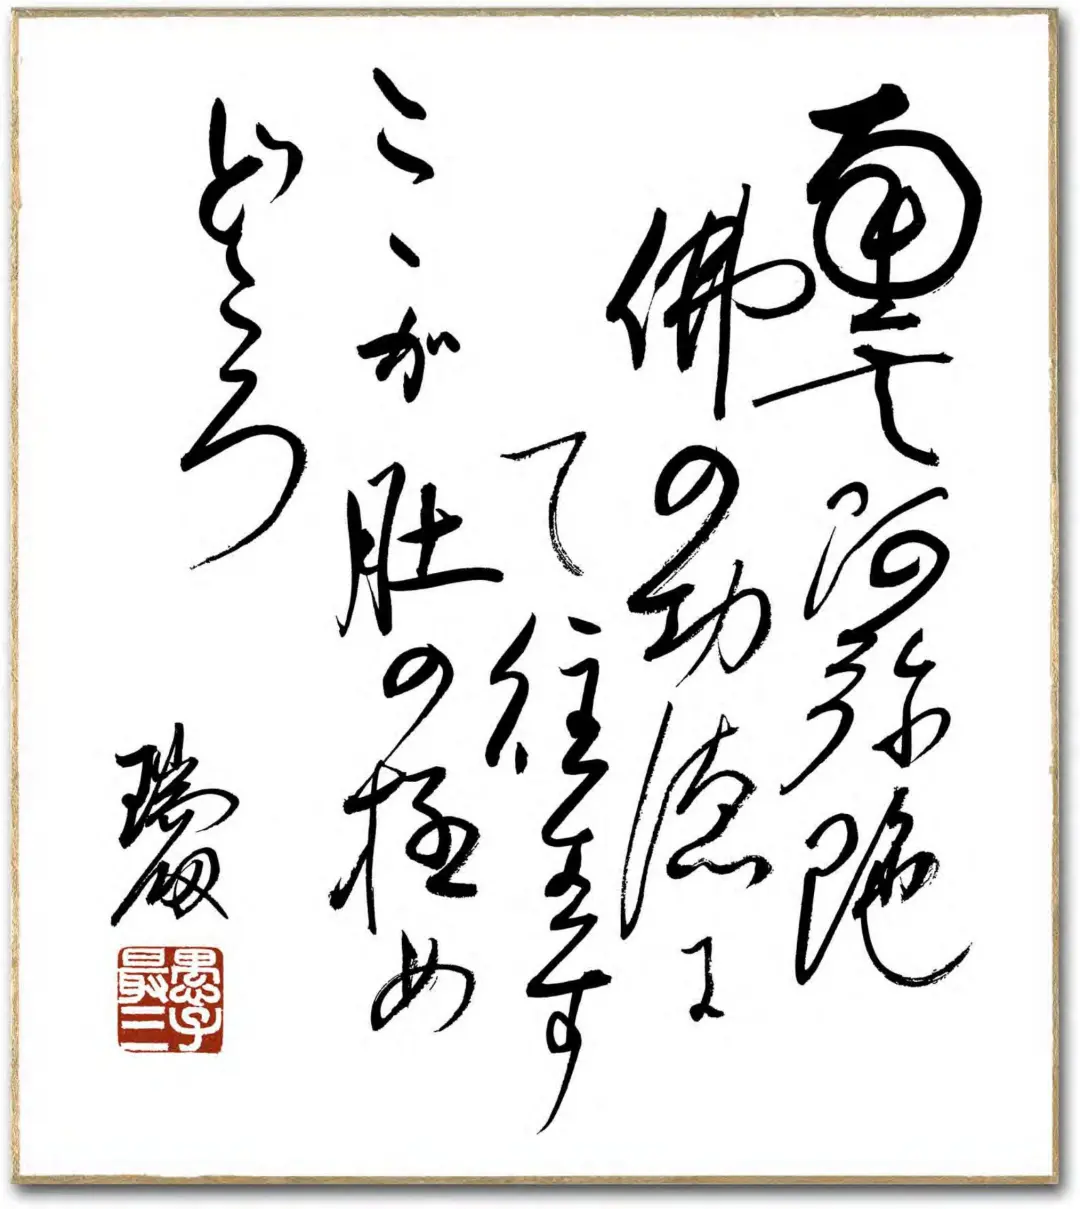 南无阿弥陀
佛の功徳に
て往生す
こゝが肚の極め
どころ
瑞劔
愚子
最三